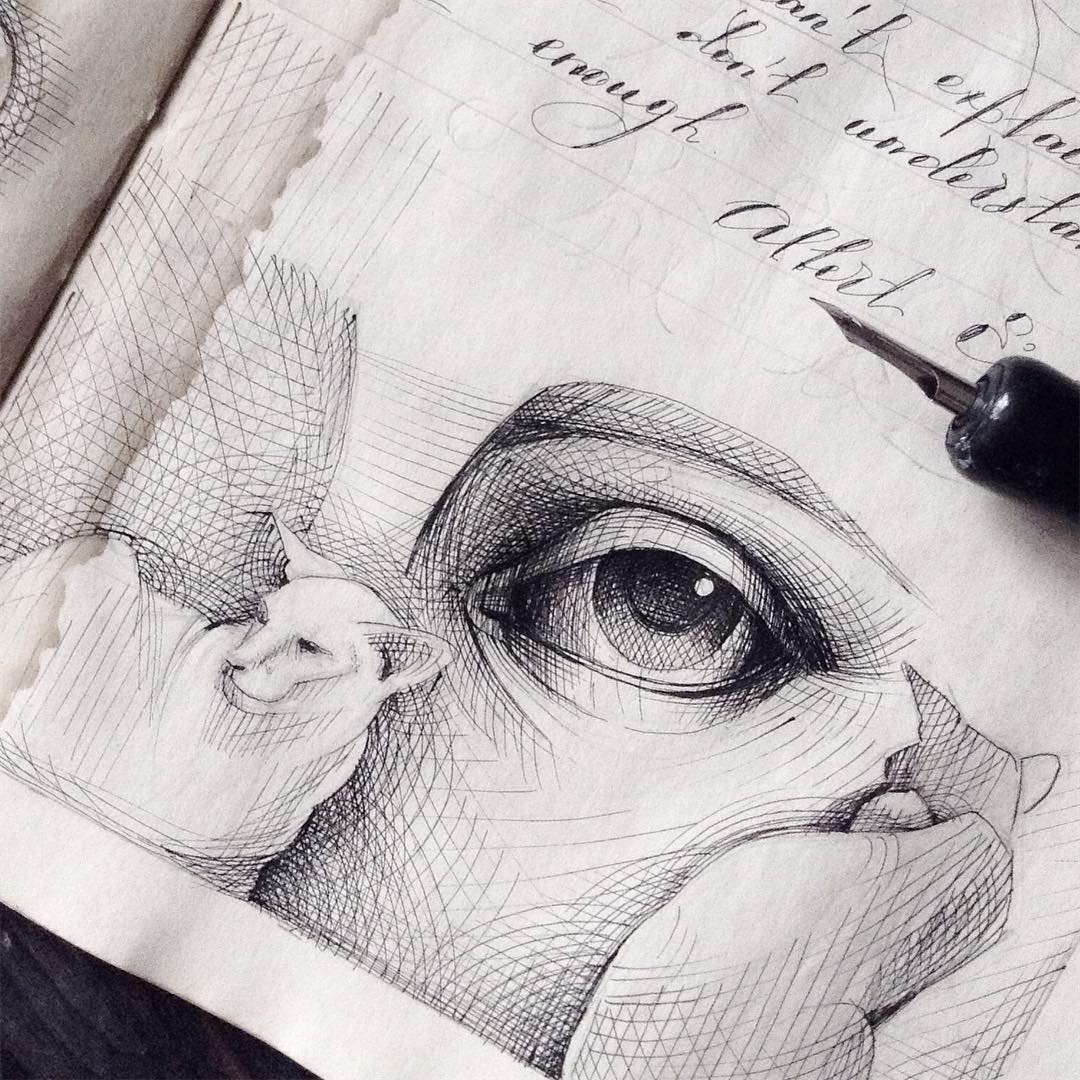 an't explai
don't understa
enough
Albert E: